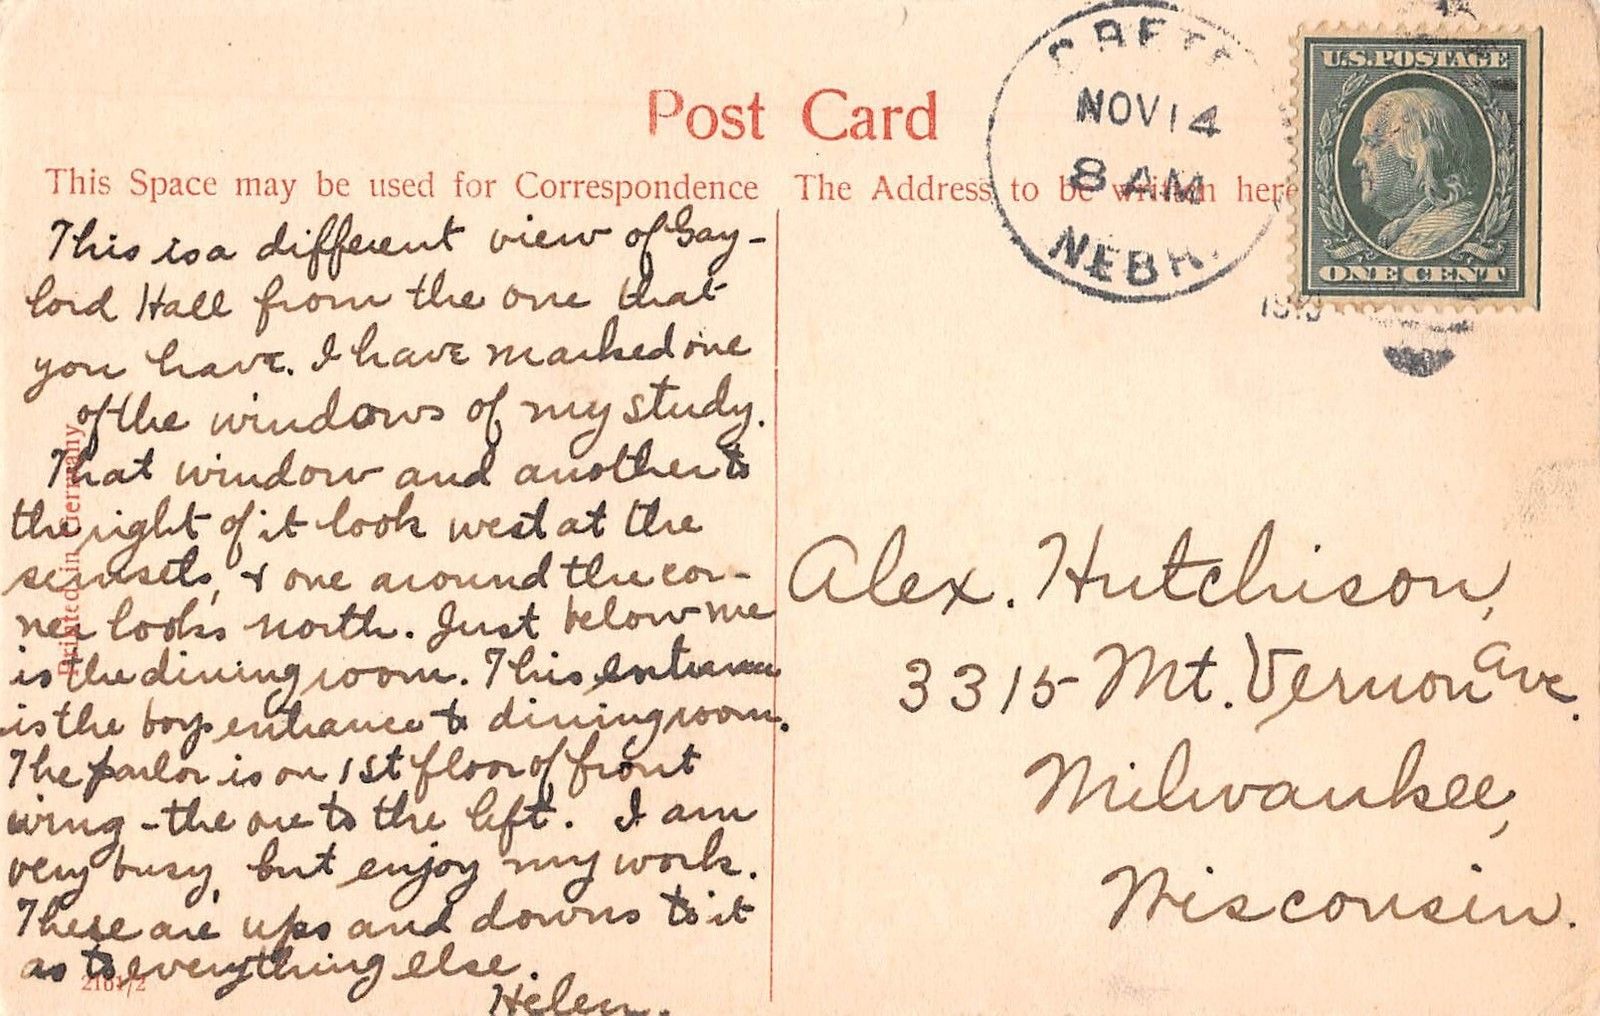 Post Card
This Space may be used for Correspondence
The Address to be written here
CRETE
NOV 14
8 AM
NEBR.
U.S. POSTAGE
ONE CENT
This is a different view of Gay-
lord Hall from the one that
you have. I have marked one
of the windows of my study.
That window and another to
the right of it look west at the
sunsets, & one around the cor-
ner looks north. Just below me
is the dining room. This entrance
is the boys entrance to dining room.
The parlor is on 1st floor of front
wing - the one to the left. I am
very busy, but enjoy my work.
These are ups and downs to it
as to everything else.
Helen.
Printed in Germany
2161/2
Alex. Hutchison,
3315 Mt. Vernon Ave.
Milwaukee,
Wisconsin.